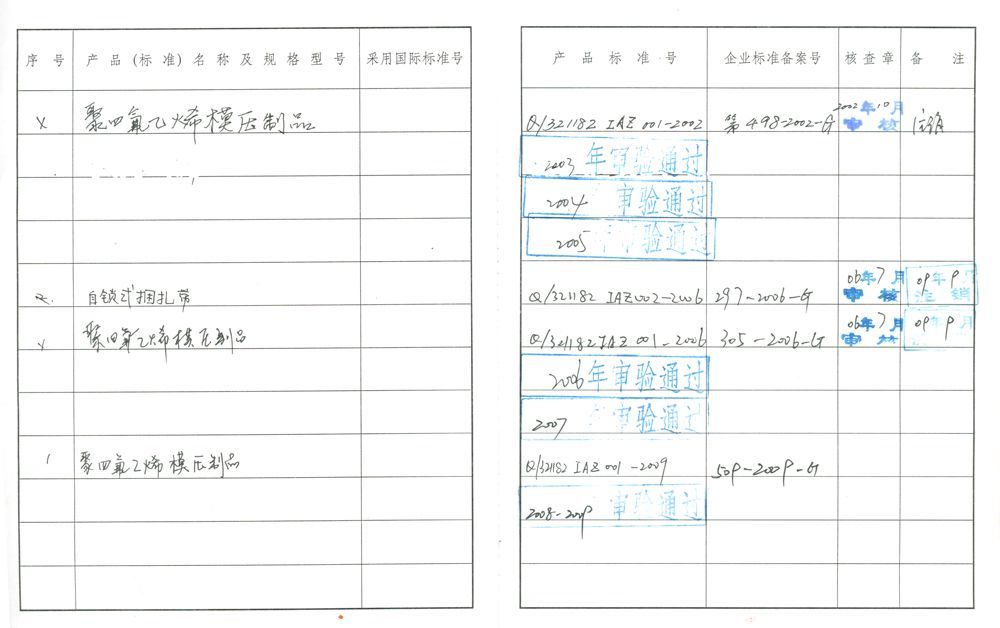 序号 产品(标准)名称及规格型号 采用国际标准号 产品标准号 企业标准备案号 核查章 备注
聚四氟乙烯模压制品 Q/321182 IAZ 001-2002 第498-2002-G 2002年10月 审核 注销
2003 年审验通过
2004 审验通过
2005 年审验通过
2. 自锁式捆扎带 Q/321182 IAZ002-2006 297-2006-G 06年7月 审核 09年9 注销
聚四氟乙烯模压制品 Q/321182 IAZ 001-2006 305-2006-G 06年7月 审核 09年9月
2006 年审验通过
2007 年审验通过
1 聚四氟乙烯模压制品 Q/321182 IAZ 001-2009 509-2009-G
2008-2009 审验通过